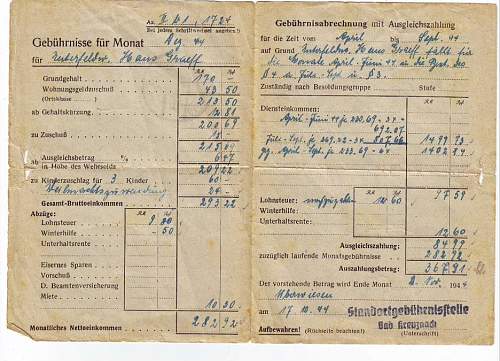 Az. II D1, 1724
Bei jedem Schriftwechsel angeben!
Gebührnisse für Monat Dez 44
für Unterfeldw. Hans Graeff
RM Rpf
Grundgehalt 170 —
Wohnungsgeldschuß 43 50
(Ortsklasse )
213 50
ab Gehaltskürzung
200 69
zu Zuschuß
215 69
ab Ausgleichsbetrag % 6 47
in Höhe des Wehrsolds
209 22
zu Kinderzuschlag für 3 Kinder 60 —
Weihnachtszuwendung 24 —
Gesamt-Bruttoeinkommen 293 22
Abzüge: RM Rpf
Lohnsteuer 9 80
Winterhilfe — 50
Unterhaltsrente
Eisernes Sparen
Vorschuß
D. Beamtenversicherung
Miete
10 30
Monatliches Nettoeinkommen 282 92
Gebührnisabrechnung mit Ausgleichszahlung
für die Zeit vom April bis Sept. 44
auf Grund Unterfeldw. Hans Graeff fällt für
die Monate April-Juni 44 in die
Zuständig nach Besoldungsgruppe Stufe
Diensteinkommen: RM Rpf
April-Juni 44
692.07
Juli-Sept. 807.66 1499 73
April-Sept. 233.69 1402 14
RM Rpf 97 59
Lohnsteuer: 12 60
Winterhilfe:
Unterhaltsrente: 12 60
Ausgleichszahlung: 84 99
zuzüglich laufende Monatsgebührnisse: 282 92
Auszahlungsbetrag: 367 91
Der vorstehende Betrag wird Ende Monat Nov. 1944
überwiesen
am 17. 10. 44
Standortgebührnisstelle
Bad Kreuznach
Aufbewahren! (Rückseite beachten!) (Unterschrift)